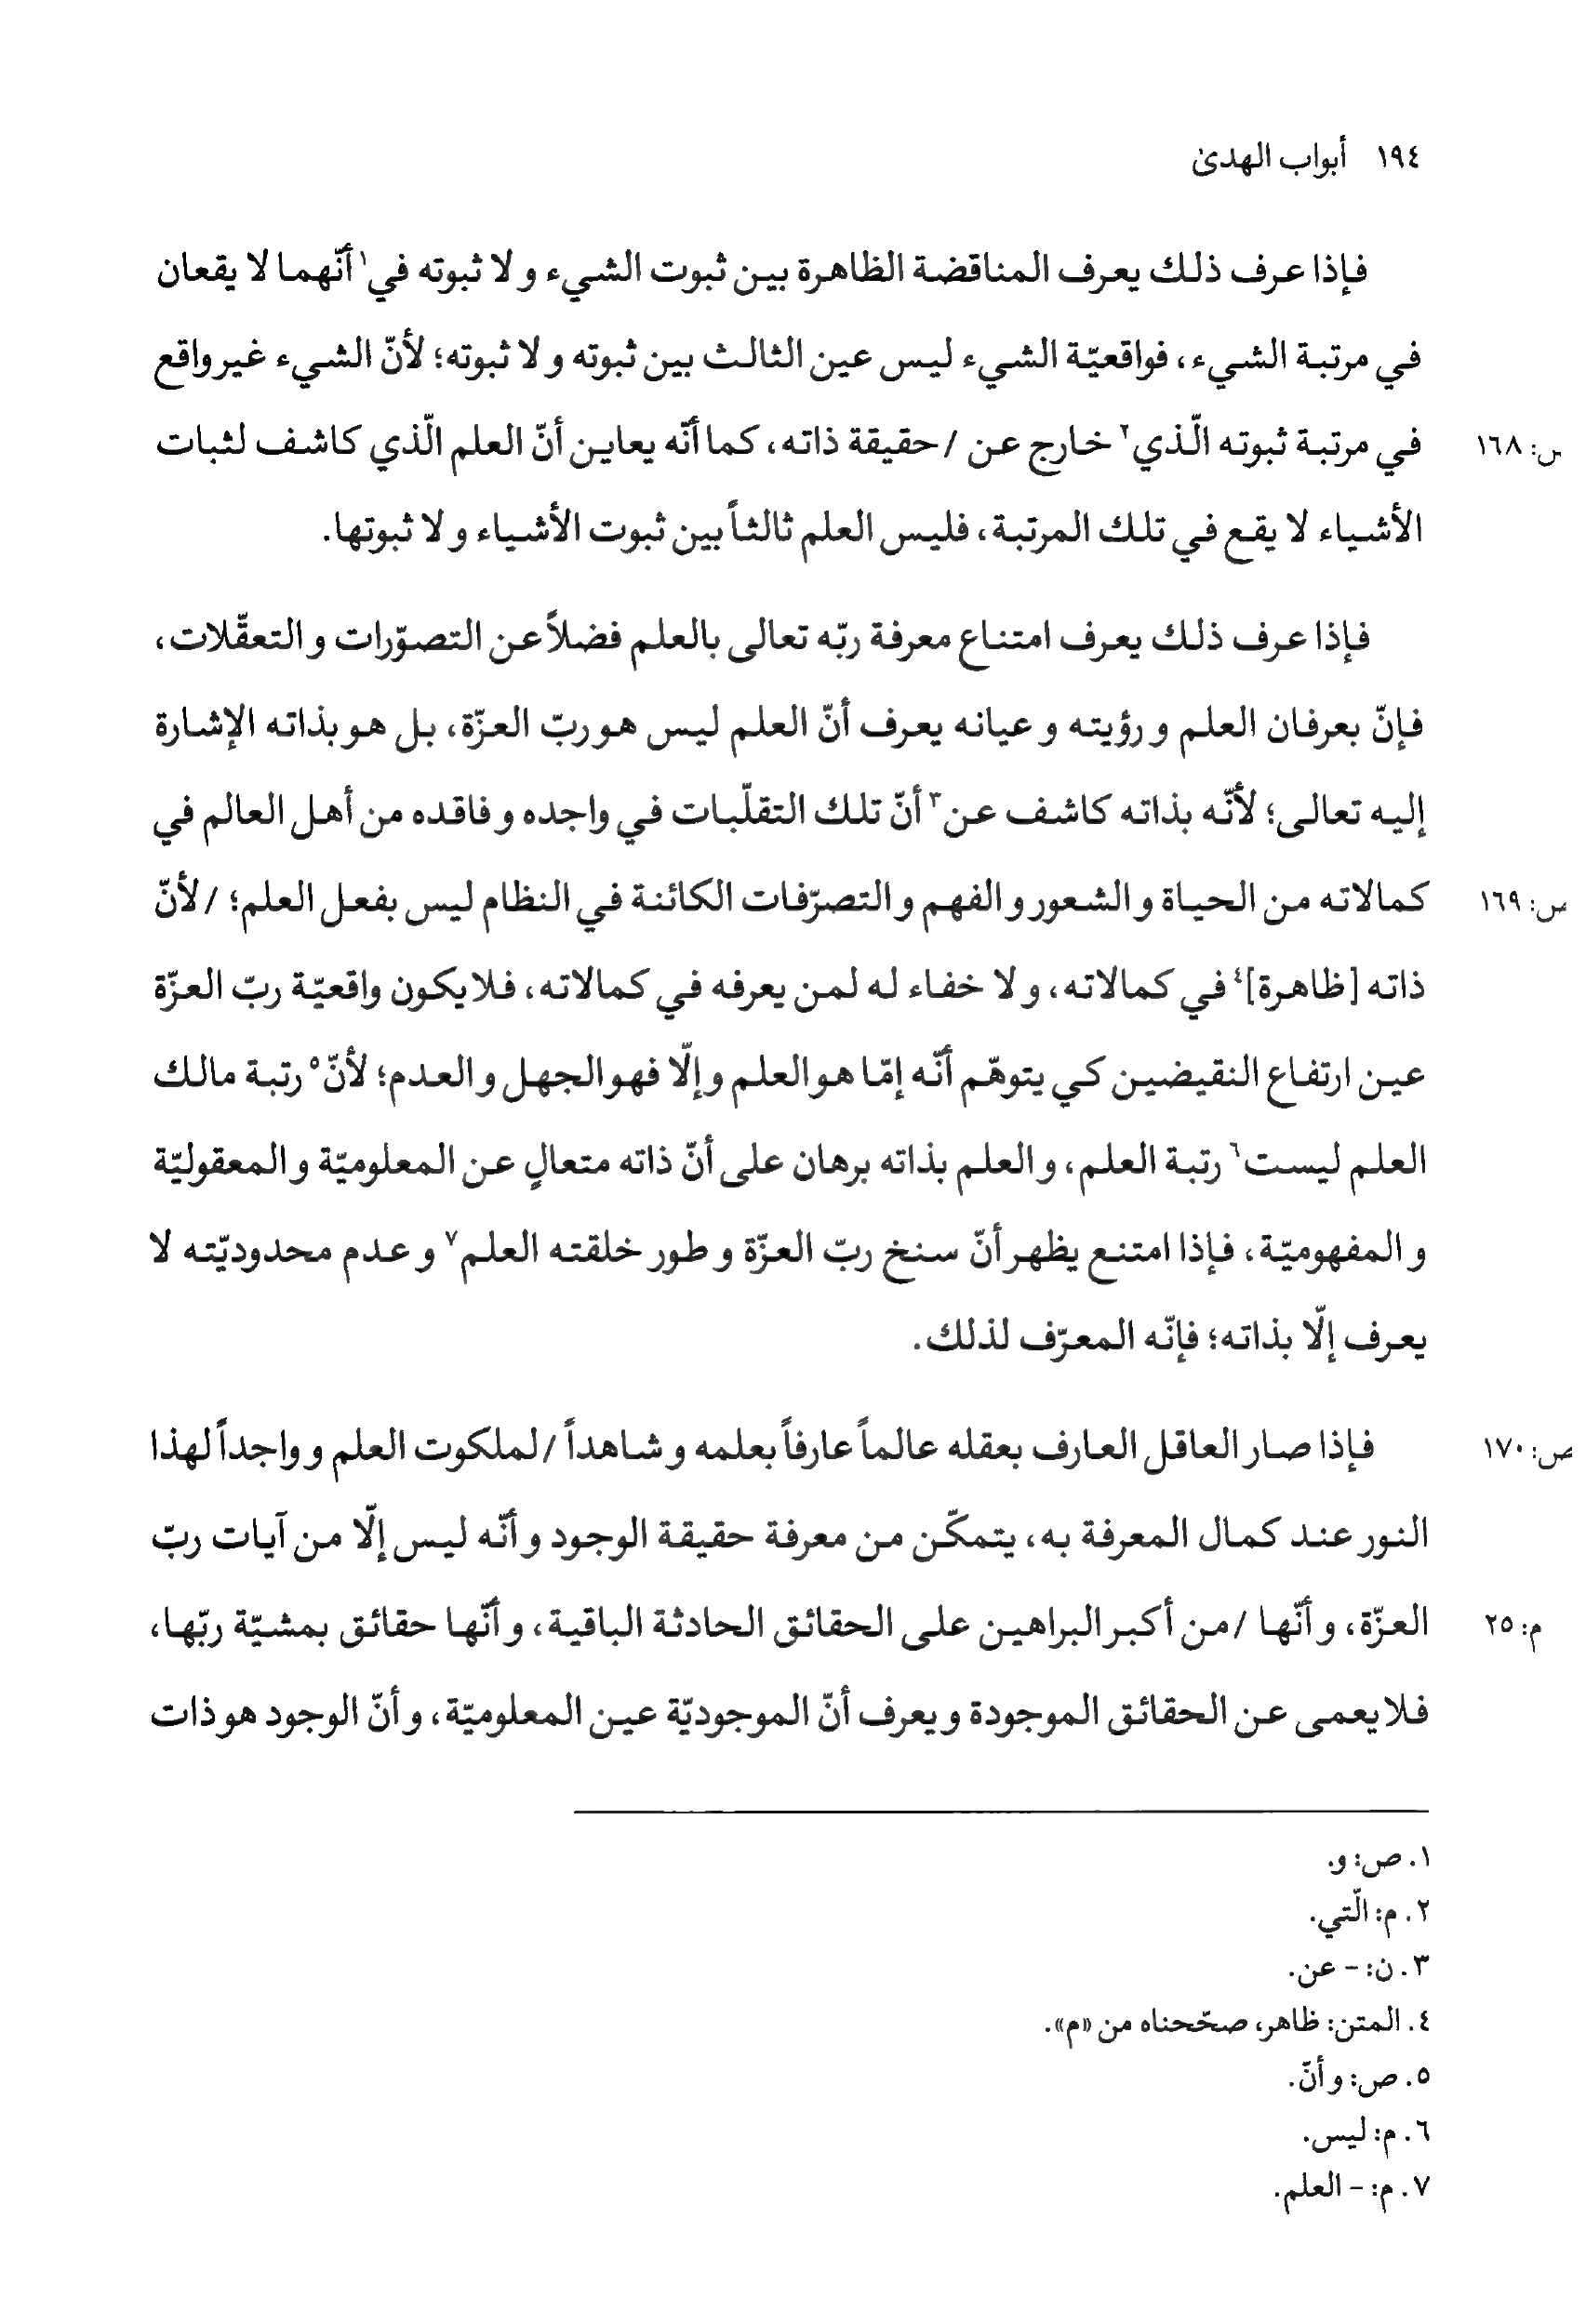 ١٩٤ أبواب الهدىٰ
فإذا عرف ذلك يعرف المناقضة الظاهرة بين ثبوت الشيء و لا ثبوته في١ أنّهما لا يقعان
في مرتبة الشيء، فواقعيّة الشيء ليس عين الثالث بين ثبوته و لا ثبوته؛ لأنّ الشيء غير واقع
في مرتبة ثبوته الّذي٢ خارج عن / حقيقة ذاته، كما أنّه يعاين أنّ العلم الّذي كاشف لثبات
ص: ١٦٨
الأشياء لا يقع في تلك المرتبة، فليس العلم ثالثاً بين ثبوت الأشياء و لا ثبوتها.
فإذا عرف ذلك يعرف امتناع معرفة ربّه تعالى بالعلم فضلاً عن التصوّرات و التعقّلات،
فإنّ بعرفان العلم و رؤيته و عيانه يعرف أنّ العلم ليس هو ربّ العزّة، بل هو بذاته الإشارة
إليه تعالى؛ لأنّه بذاته كاشف عن٣ أنّ تلك التقلّبات في واجده و فاقده من أهل العالم في
كمالاته من الحياة و الشعور و الفهم و التصرّفات الكائنة في النظام ليس بفعل العلم؛ / لأنّ
ص: ١٦٩
ذاته [ظاهرة]٤ في كمالاته، و لا خفاء له لمن يعرفه في كمالاته، فلا يكون واقعيّة ربّ العزّة
عين ارتفاع النقيضين كي يتوهّم أنّه إمّا هو العلم و إلّا فهو الجهل و العدم؛ لأنّ٥ رتبة مالك
العلم ليست٦ رتبة العلم، و العلم بذاته برهان على أنّ ذاته متعالٍ عن المعلوميّة و المعقوليّة
و المفهوميّة، فإذا امتنع يظهر أنّ سنخ ربّ العزّة و طور خلقته العلم٧ و عدم محدوديّته لا
يعرف إلّا بذاته؛ فإنّه المعرّف لذلك.
فإذا صار العاقل العارف بعقله عالماً عارفاً بعلمه و شاهداً / لملكوت العلم و واجداً لهذا
ص: ١٧٠
النور عند كمال المعرفة به، يتمكّن من معرفة حقيقة الوجود و أنّه ليس إلّا من آيات ربّ
العزّة، و أنّها / من أكبر البراهين على الحقائق الحادثة الباقية، و أنّها حقائق بمشيّة ربّها،
م: ٢٥
فلا يعمى عن الحقائق الموجودة و يعرف أنّ الموجوديّة عين المعلوميّة، و أنّ الوجود هو ذات
١. ص: و.
٢. م: الّتي.
٣. ن: – عن.
٤. المتن: ظاهر، صحّحناه من «م».
٥. ص: و أنّ.
٦. م: ليس.
٧. م: – العلم.